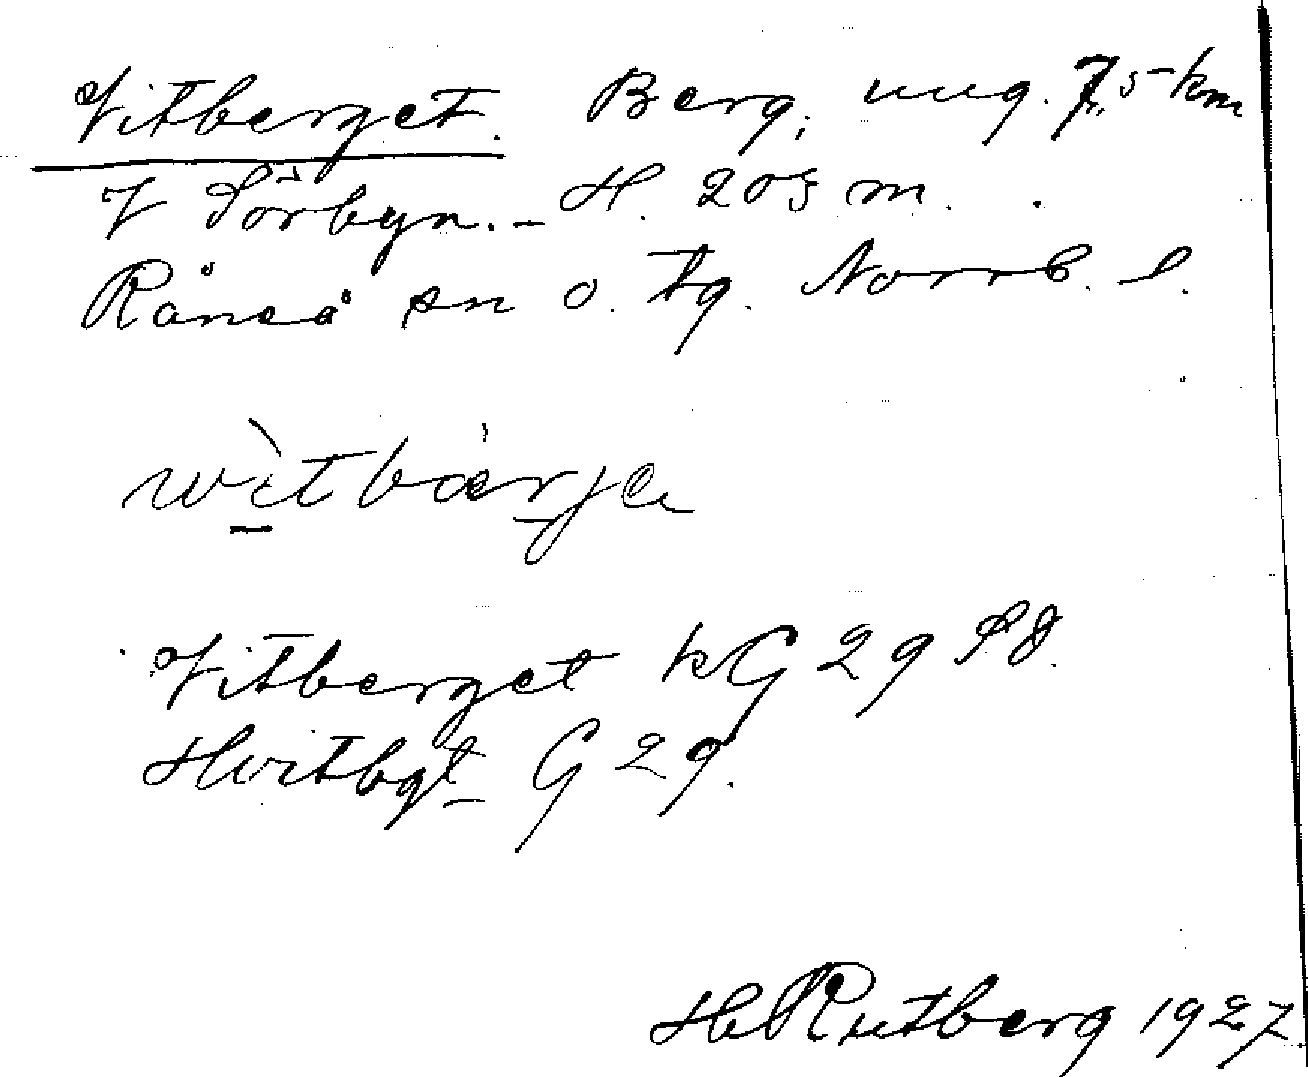 Vitberget. Berg, ung. 7,5 km
V Sörbyn. - H. 205 m.
Råneå sn o. tg. Norrb. l.
wìtbærje
Vitberget KG 29 SO.
Hvitbgt G 29.
H Rutberg 1927